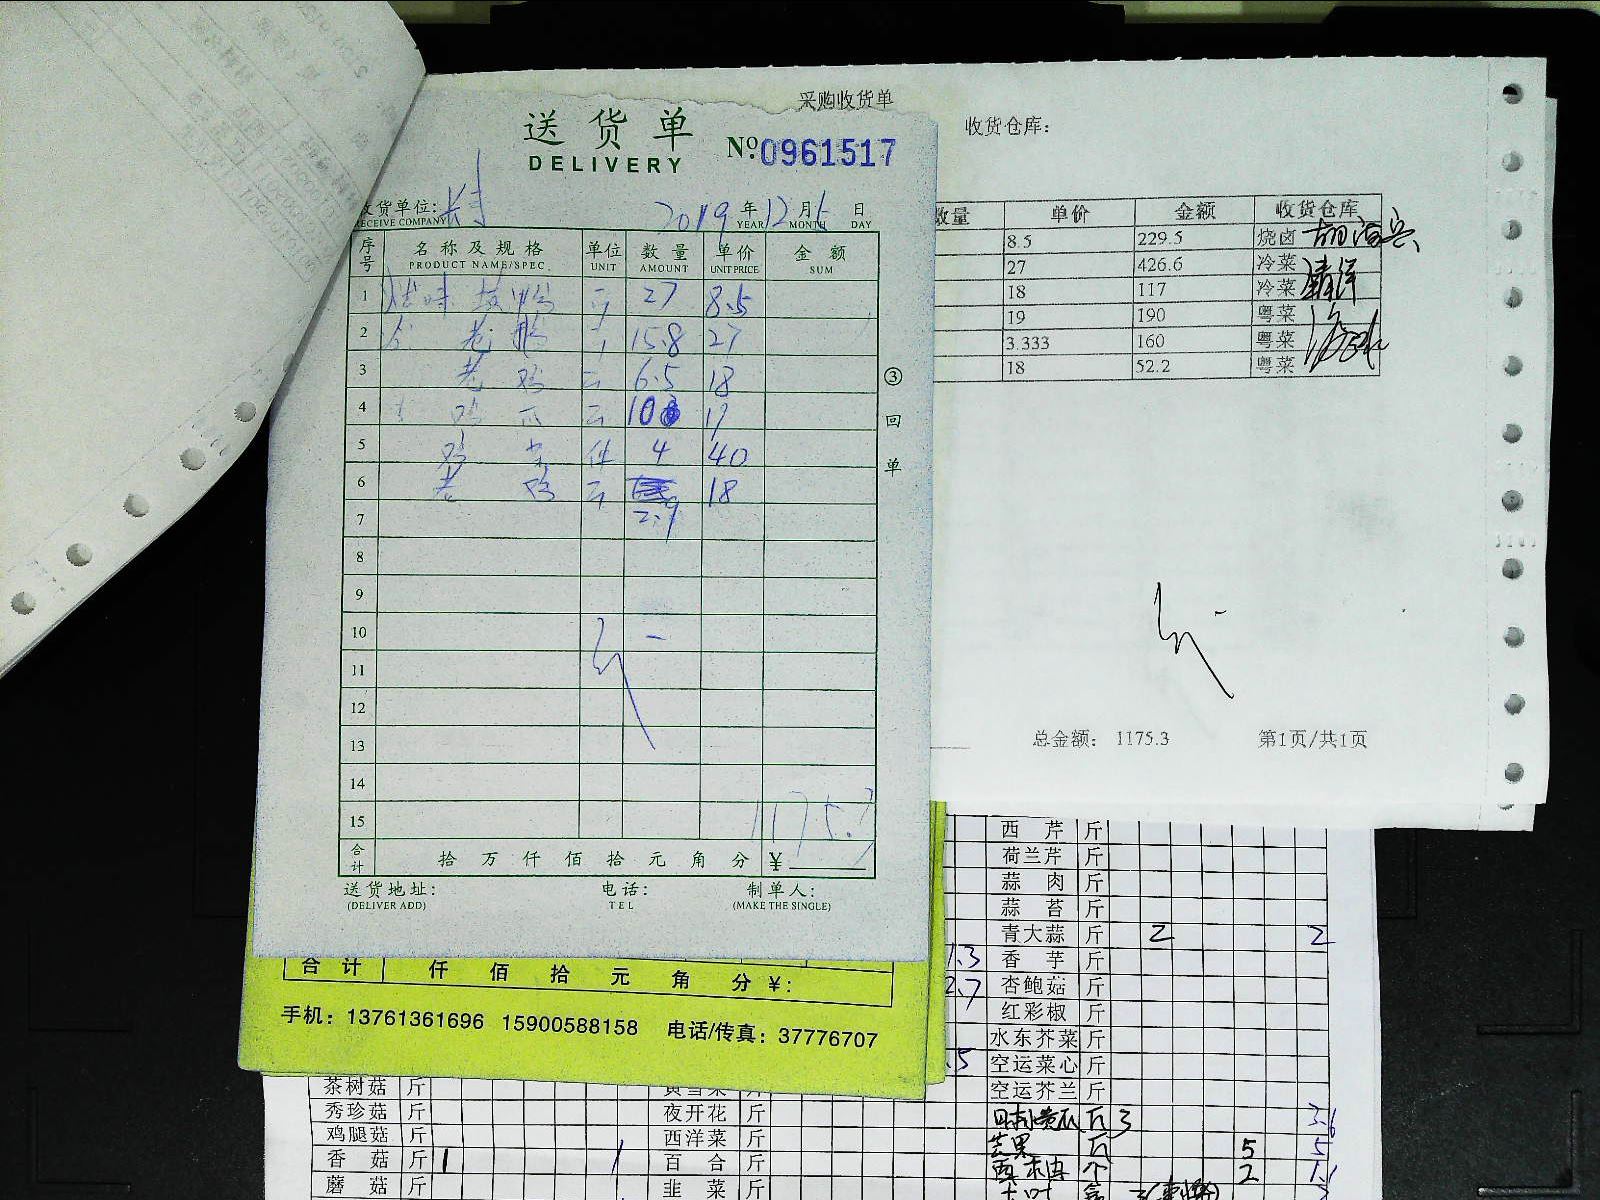 采购收货单
送货单
DELIVERY
No:0961517
收货仓库：
收货单位：
RECEIVE COMPANY
2019 年 12 月 日
YEAR MONTH DAY
序号 名称及规格 单位 数量 单价 金额
PRODUCT NAME/SPEC. UNIT AMOUNT UNIT PRICE SUM
1 27 8.5
2 老鸭 15.8 27
3 老鸡 6.5 18
4 鸡 10
5 鸡 件 4 40
6 老鸡 18
7 2.9
8
9
10
11
12
13
14
15
1175.3
合计 拾 万 仟 佰 拾 元 角 分 ¥
送货地址： 电话： 制单人：
(DELIVER ADD) TEL (MAKE THE SINGLE)
③ 回单
数量 单价 金额 收货仓库
8.5 229.5 烧卤
27 426.6 冷菜
18 117 冷菜
19 190 粤菜
3.333 160 粤菜
18 52.2 粤菜
总金额： 1175.3 第1页/共1页
合计 仟 佰 拾 元 角 分 ¥：
手机：13761361696 15900588158 电话/传真：37776707
西芹 斤
荷兰芹 斤
蒜肉 斤
蒜苔 斤
青大蒜 斤 2 2
1.3 香芋 斤
2.7 杏鲍菇 斤
红彩椒 斤
水东芥菜 斤
.5 空运菜心 斤
空运芥兰 斤
斤 3 3.6
芒果 斤 5 5
个 2
茶树菇 斤
秀珍菇 斤 夜开花 斤
鸡腿菇 斤 西洋菜 斤
香菇 斤 1 1 百合 斤
蘑菇 斤 韭菜 斤